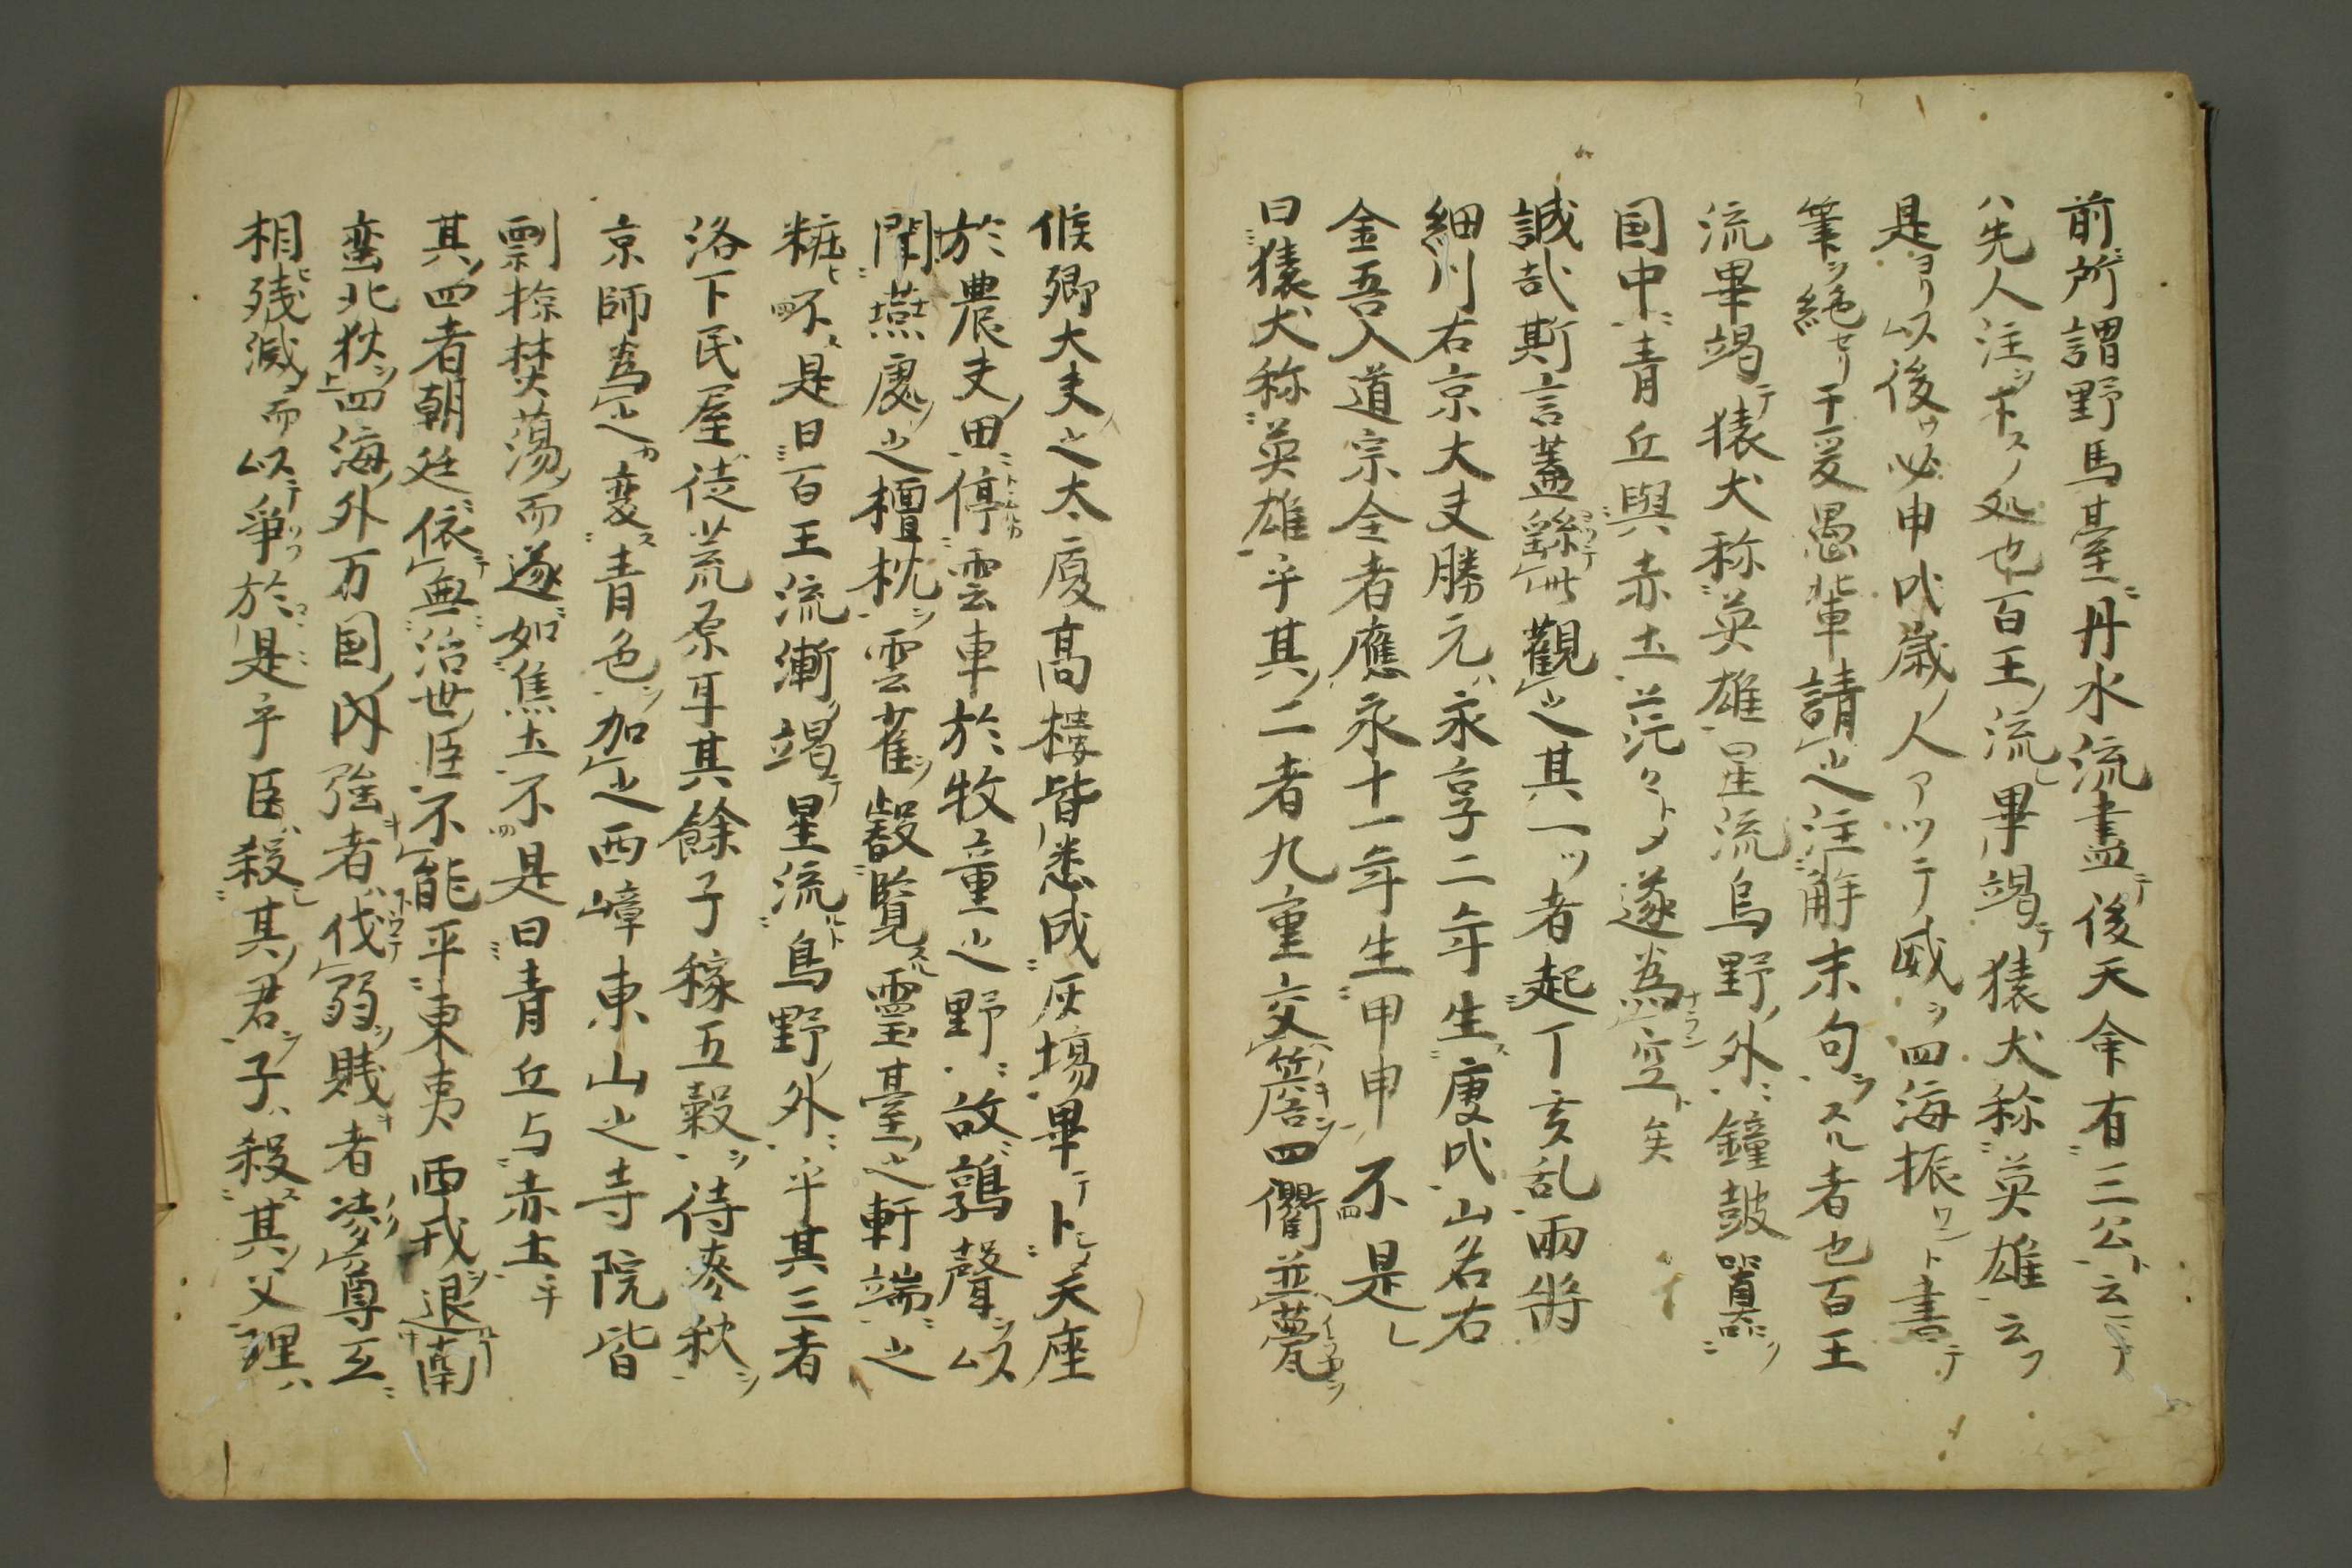 前ニ所謂野馬臺ニ丹水流盡テ後天命有三公ト云ニテ
ハ先人注シ下スノ処也百王ノ流レ畢竭テ猿犬称英雄云フ
是ヨリ以後ヲ必申戌歳ノ人アツテ威ヲ四海振ワント書テ
筆ヲ絶セリ于爰愚輩請之注觧末句ヲスル者也百王
流畢竭テ猿犬称英雄星流烏野外ニ鐘皷囂シ
国中ニ青丘與赤土茫々トメ遂為空ト矣
誠哉斯言蓋繇此觀之其一ツ者起丁亥乱両将
細川右京大夫勝元ハ永享二年生庚戌山名右
金吾入道宗全者應永十一年生甲申ニ不是レ
曰猿犬称英雄乎其ノ二者九重交簷四衢並甍
候卿大夫之大廈高樓皆悉成灰塲畢テトシメ天座
於農夫ノ田ニ停雲車於牧童之野ニ故ニ鶉聲ヲ以
聞燕處ノ之檀枕シ雲雀ヲ叡覧スル霊臺ノ之軒端ニ之
粧ヒ不是曰百王流漸ノ竭テ星流ルト烏野外ニ乎其三者
洛下民屋徒荒原耳其餘子稼五穀ヲ待麥秋ヲ
京師為之カ変ス青色ヲ加之西嶂東山之寺院皆
剽掠焚蕩而遂如焦土不是曰青丘与赤土乎
其ノ四者朝廷依テ無治世ノ臣不能平東夷西戎退南
蛮北狄ヲ四海ノ外万国ノ内強キ者ハ伐テ弱ヲ賎キ者凌尊互ニ
相残滅ヨ而以テ爭フ於是乎臣ハ殺シ其ノ君ヲ子ハ殺ス其ノ父理ハ